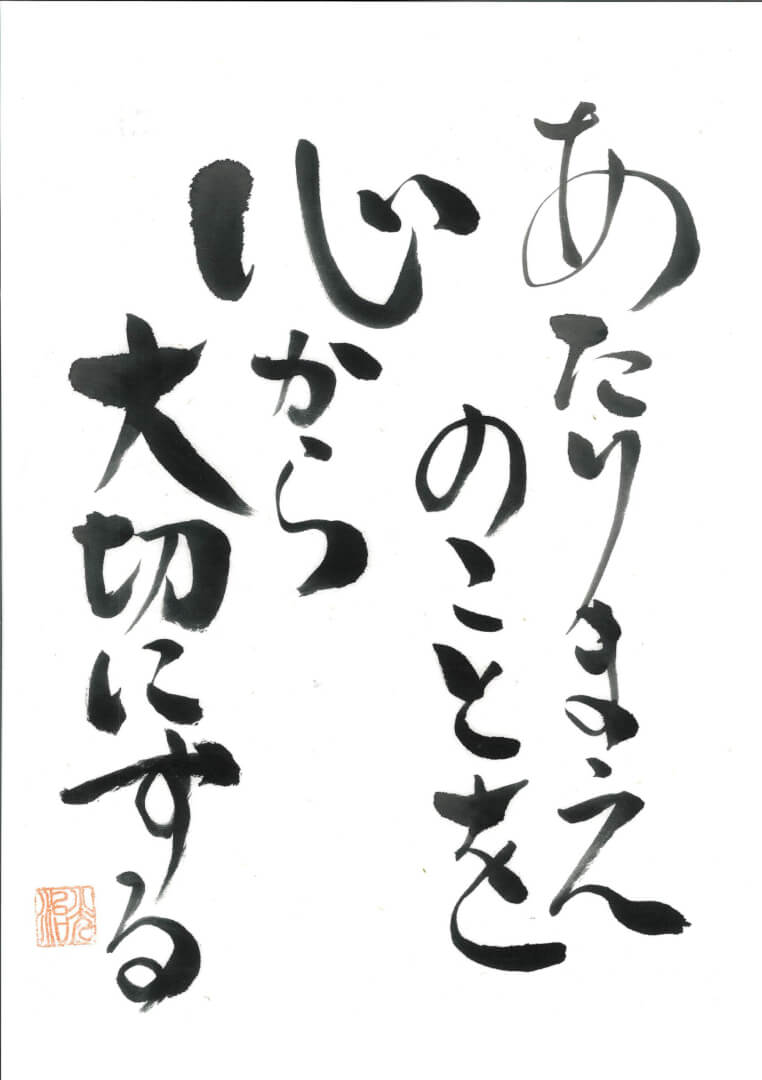 あたりまえ
のことを
心から
大切にする